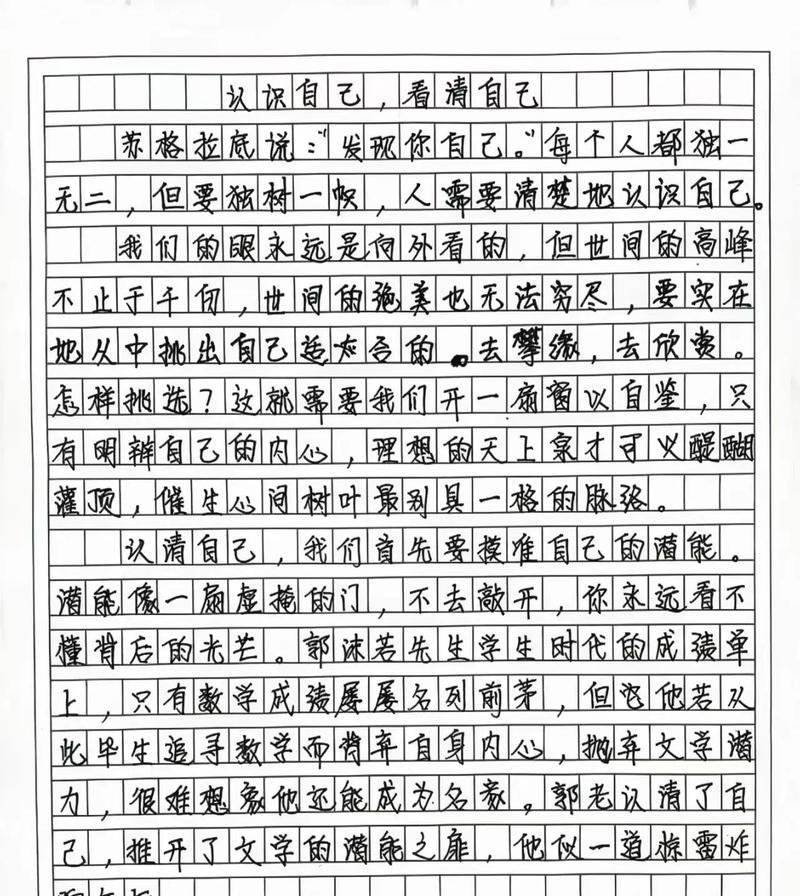 认识自己，看清自己
苏格拉底说：“发现你自己。”每个人都独一
无二，但要独树一帜，人需要清楚地认识自己。
我们的眼永远是向外看的，但世间的高峰
不止于千仞，世间的绝美也无法穷尽，要实在
地从中挑出自己适合的。去攀缘，去欣赏。
怎样挑选？这就需要我们开一扇窗以自鉴，只
有明辨自己的内心，理想的天上泉才可以醍醐
灌顶，催生心间树叶最别具一格的脉络。
认清自己，我们首先要摸准自己的潜能。
潜能像一扇虚掩的门，不去敲开，你永远看不
懂背后的光芒。郭沫若先生学生时代的成绩单
上，只有数学成绩屡屡名列前茅，但他若从
此毕生追寻数学而背弃自身内心，抛弃文学潜
力，很难想象他还能成为名家。郭老认清了自
己，推开了文学的潜能之扉，他似一道惊雷炸